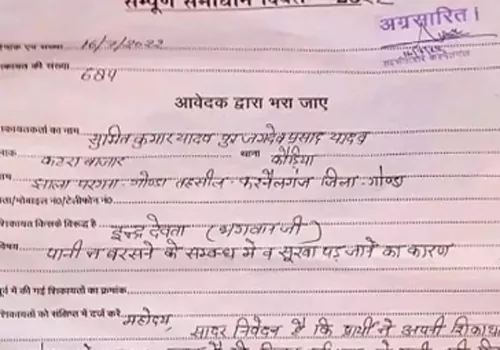 सम्पूर्ण समाधान दिवस
अग्रसारित।
एवं संख्या 16/7/2022
की संख्या 684
आवेदक द्वारा भरा जाए
का नाम सुमित कुमार यादव पुत्र जगदेव प्रसाद यादव
कटरा बाजार थाना कौड़िया
झाला परगना-गोण्डा तहसील-करनैलगंज जिला-गोण्डा
/मोबाइल नं0/टेलीफोन नं0
शिकायत किसके विरूद्ध है इन्द्र देवता (भगवान जी)
विषय पानी न बरसने के सम्बन्ध मे व सूखा पड़ जाने का कारण
पूर्व में की गई शिकायतों का क्रमांक
शिकायतों को संक्षिप्त में दर्ज करें महोदय,
सादर निवेदन है कि प्रार्थी ने अपनी